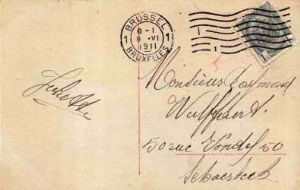 BRUSSEL
1 8-1 1
8 -VI
1911
BRUXELLES
Juliette
Monsieur Raymond
Wulffaert
50 rue Vondel 50
Schaerbeek